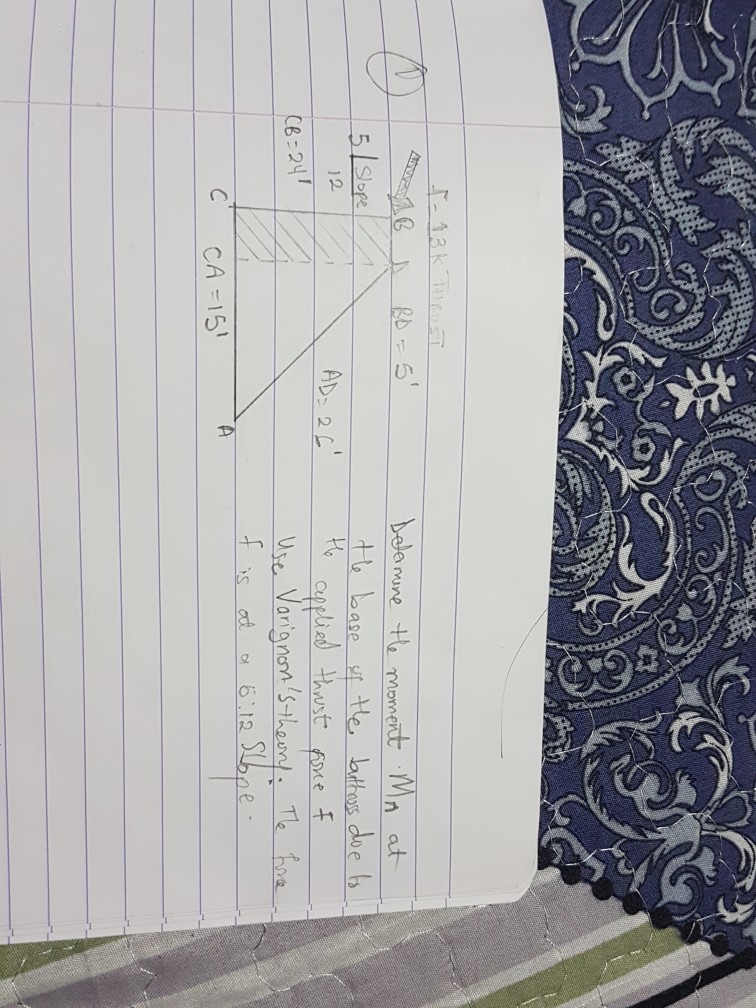 1
f = 13k Thrust
B D BD = 5'
5 Slope
12
CB = 24'
AD = 26'
C CA = 15' A
Determine the moment. MA at
the base of the buttress due to
the applied thrust force f
Use Varignon's theory. The force
f is at a 5:12 Slope.